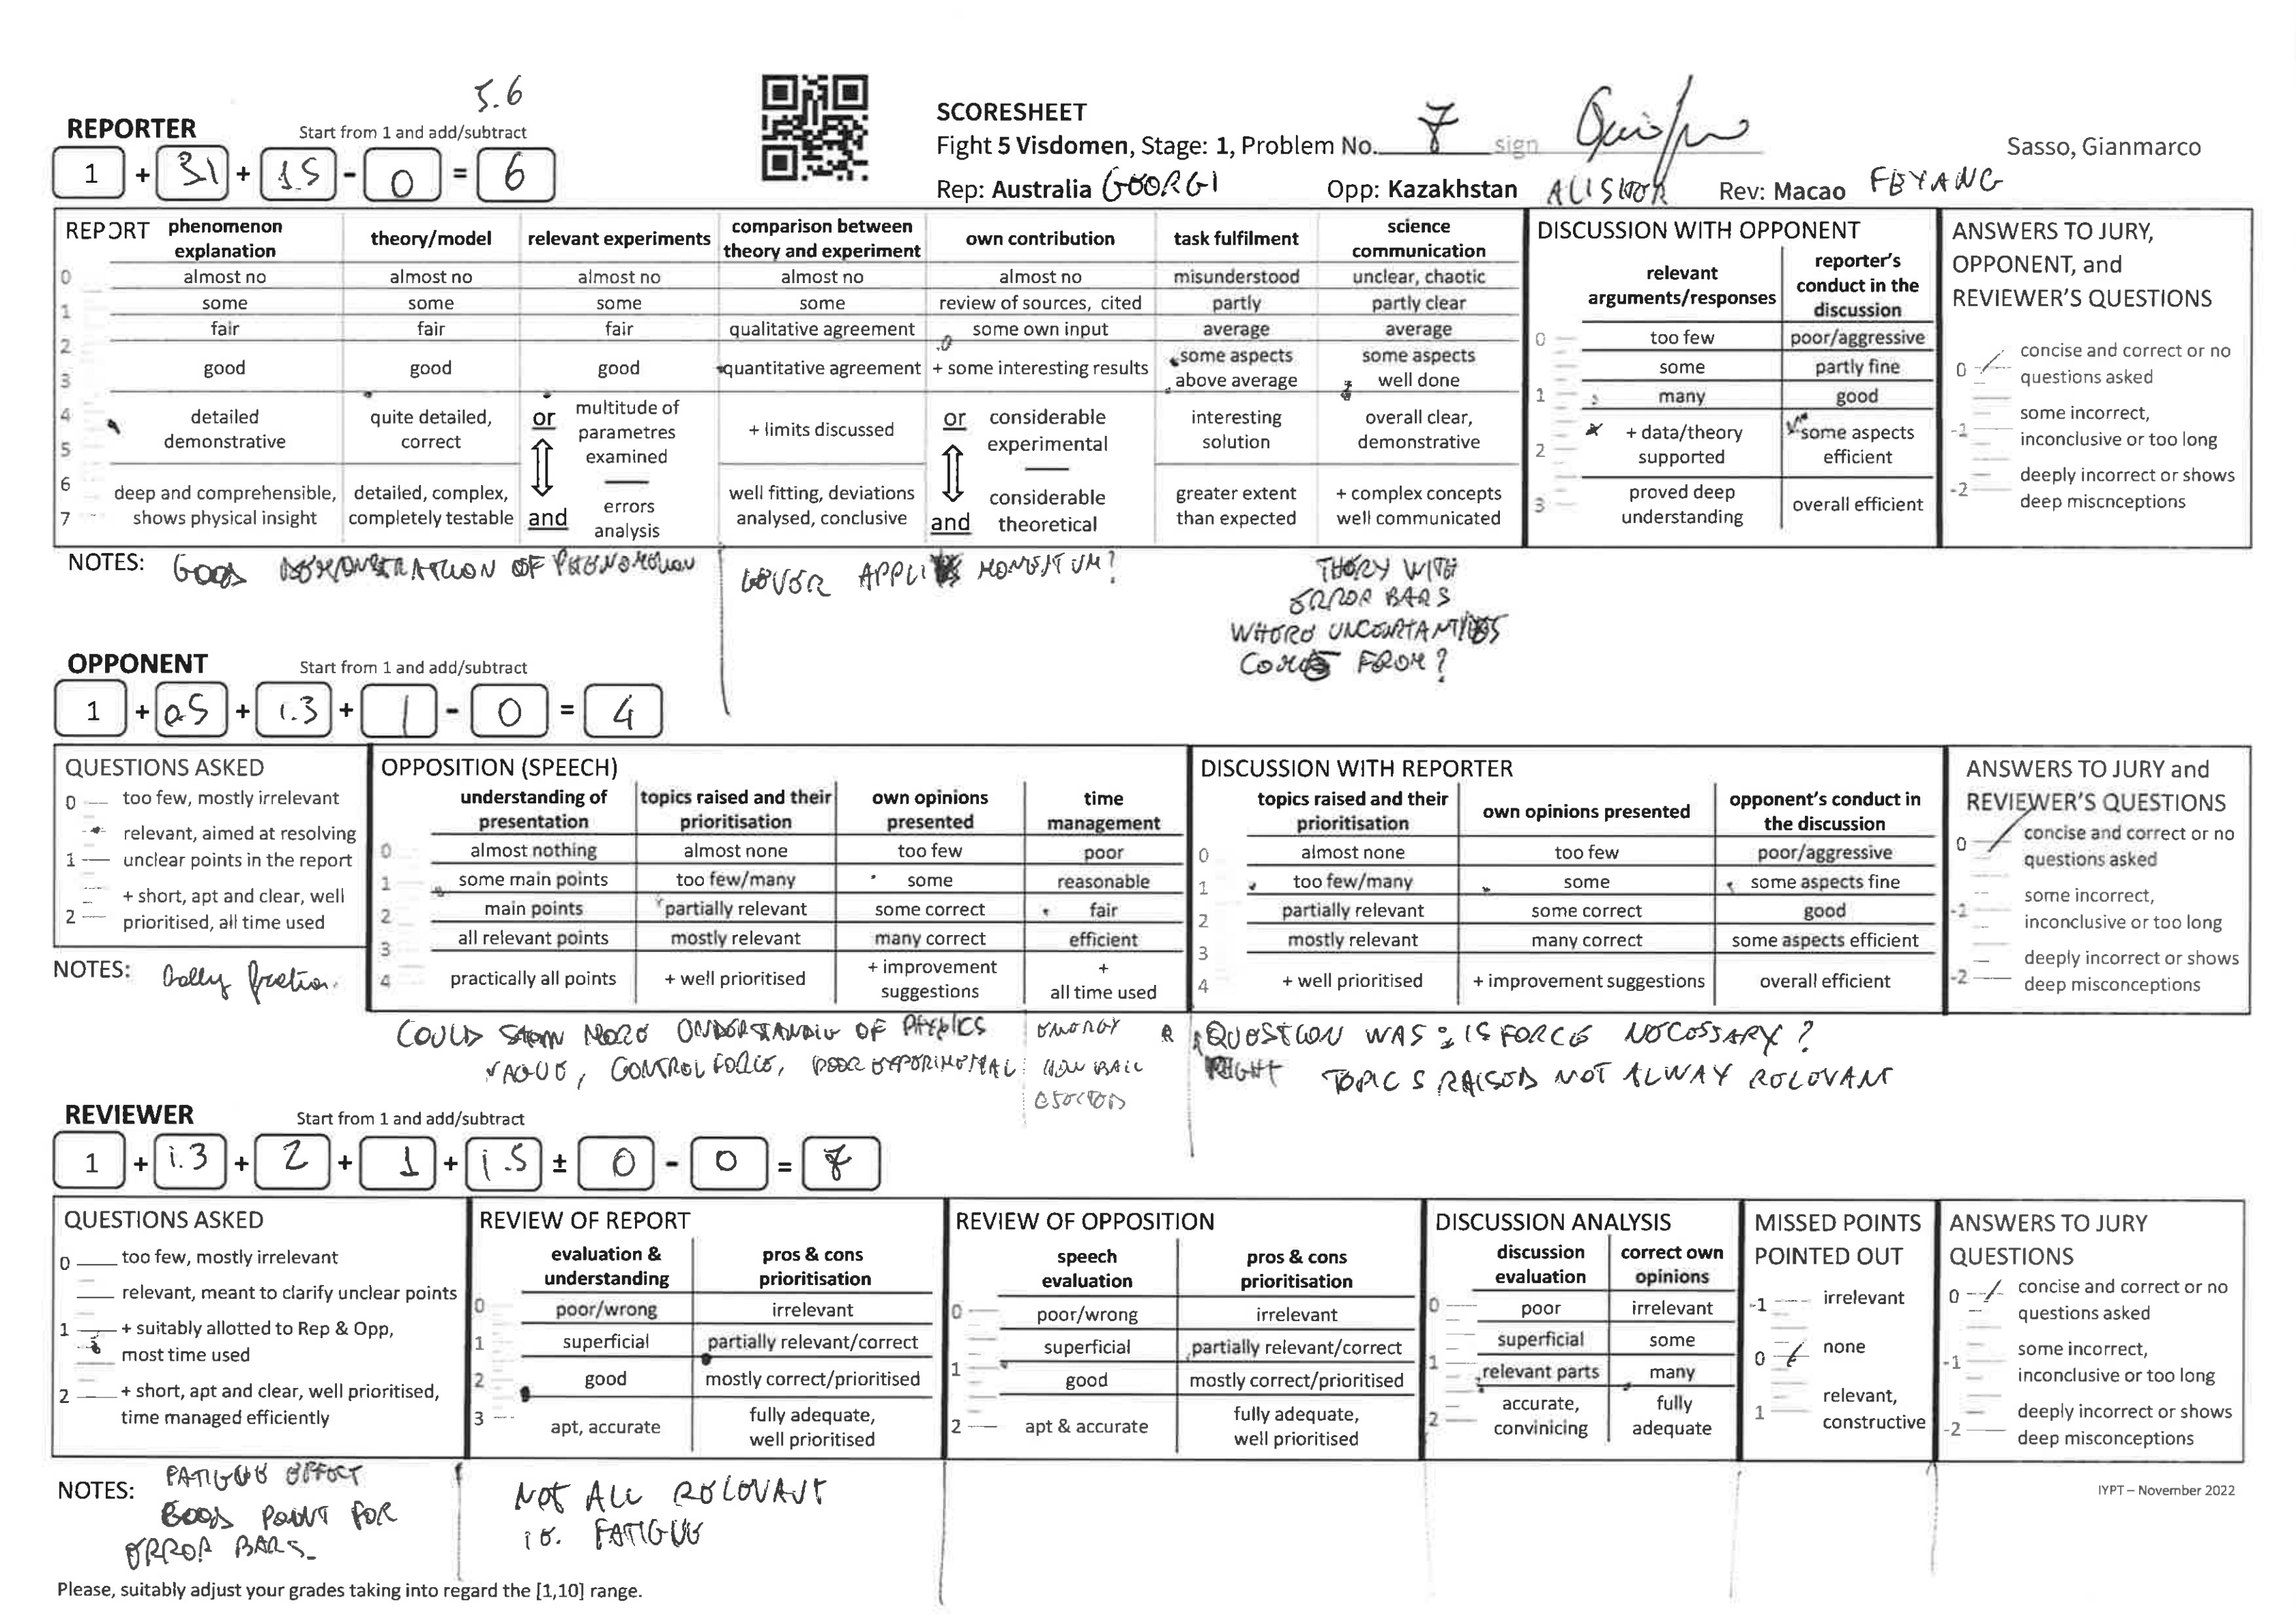 5.6
REPORTER Start from 1 and add/subtract
1 + 3.1 + 1.5 - 0 = 6
SCORESHEET
Fight 5 Visdomen, Stage: 1, Problem No. 7 sign
Sasso, Gianmarco
Rep: Australia GEORGI Opp: Kazakhstan ALISHER Rev: Macao FEYANG
REPORT
phenomenon explanation | theory/model | relevant experiments | comparison between theory and experiment | own contribution | task fulfilment | science communication
0 almost no | almost no | almost no | almost no | almost no | misunderstood | unclear, chaotic
1 some | some | some | some | review of sources, cited | partly | partly clear
fair | fair | fair | qualitative agreement | some own input | average | average
2
3 good | good | good | quantitative agreement | + some interesting results | some aspects above average | some aspects well done
4
5 detailed demonstrative | quite detailed, correct | or multitude of parametres examined | + limits discussed | or considerable experimental | interesting solution | overall clear, demonstrative
6
7 deep and comprehensible, shows physical insight | detailed, complex, completely testable | and errors analysis | well fitting, deviations analysed, conclusive | and considerable theoretical | greater extent than expected | + complex concepts well communicated
DISCUSSION WITH OPPONENT
relevant arguments/responses | reporter's conduct in the discussion
0 too few | poor/aggressive
some | partly fine
1 many | good
2 + data/theory supported | some aspects efficient
3 proved deep understanding | overall efficient
ANSWERS TO JURY, OPPONENT, and REVIEWER'S QUESTIONS
0 concise and correct or no questions asked
-1 some incorrect, inconclusive or too long
-2 deeply incorrect or shows deep miscnceptions
NOTES: GOOD DEMONSTRATION OF PHENOMENON
LEVER APPLIES MOMENTUM?
THEORY WITH
ERROR BARS
WHERE UNCERTAINTIES
COMES FROM?
OPPONENT Start from 1 and add/subtract
1 + 0.5 + 1.3 + 1 - 0 = 4
QUESTIONS ASKED
0 too few, mostly irrelevant
relevant, aimed at resolving
1 unclear points in the report
+ short, apt and clear, well
2 prioritised, all time used
OPPOSITION (SPEECH)
understanding of presentation | topics raised and their prioritisation | own opinions presented | time management
0 almost nothing | almost none | too few | poor
1 some main points | too few/many | some | reasonable
2 main points | partially relevant | some correct | fair
3 all relevant points | mostly relevant | many correct | efficient
4 practically all points | + well prioritised | + improvement suggestions | + all time used
DISCUSSION WITH REPORTER
topics raised and their prioritisation | own opinions presented | opponent's conduct in the discussion
0 almost none | too few | poor/aggressive
1 too few/many | some | some aspects fine
2 partially relevant | some correct | good
3 mostly relevant | many correct | some aspects efficient
4 + well prioritised | + improvement suggestions | overall efficient
ANSWERS TO JURY and REVIEWER'S QUESTIONS
0 concise and correct or no questions asked
-1 some incorrect, inconclusive or too long
-2 deeply incorrect or shows deep misconceptions
NOTES: Belly friction.
COULD SHOW MORE UNDERSTANDING OF PHYSICS
VAGUE, CONTROL FORCE, POOR EXPERIMENTAL
ENERGY
HOW BALL
EJECTED
QUESTION WAS: IS FORCE NECESSARY?
RIGHT TOPICS RAISED NOT ALWAY RELEVANT
REVIEWER Start from 1 and add/subtract
1 + 1.3 + 2 + 1 + 1.5 ± 0 - 0 = 7
QUESTIONS ASKED
0 too few, mostly irrelevant
relevant, meant to clarify unclear points
1 + suitably allotted to Rep & Opp,
most time used
2 + short, apt and clear, well prioritised,
time managed efficiently
REVIEW OF REPORT
evaluation & understanding | pros & cons prioritisation
0 poor/wrong | irrelevant
1 superficial | partially relevant/correct
2 good | mostly correct/prioritised
3 apt, accurate | fully adequate, well prioritised
REVIEW OF OPPOSITION
speech evaluation | pros & cons prioritisation
0 poor/wrong | irrelevant
superficial | partially relevant/correct
1 good | mostly correct/prioritised
2 apt & accurate | fully adequate, well prioritised
DISCUSSION ANALYSIS
discussion evaluation | correct own opinions
0 poor | irrelevant
superficial | some
1 relevant parts | many
2 accurate, convinicing | fully adequate
MISSED POINTS POINTED OUT
-1 irrelevant
0 none
1 relevant, constructive
ANSWERS TO JURY QUESTIONS
0 concise and correct or no questions asked
-1 some incorrect, inconclusive or too long
-2 deeply incorrect or shows deep misconceptions
NOTES: FATIGUE EFFECT
GOOD POINT FOR
ERROR BARS
NOT ALL RELEVANT
i.e. FATIGUE
IYPT – November 2022
Please, suitably adjust your grades taking into regard the [1,10] range.